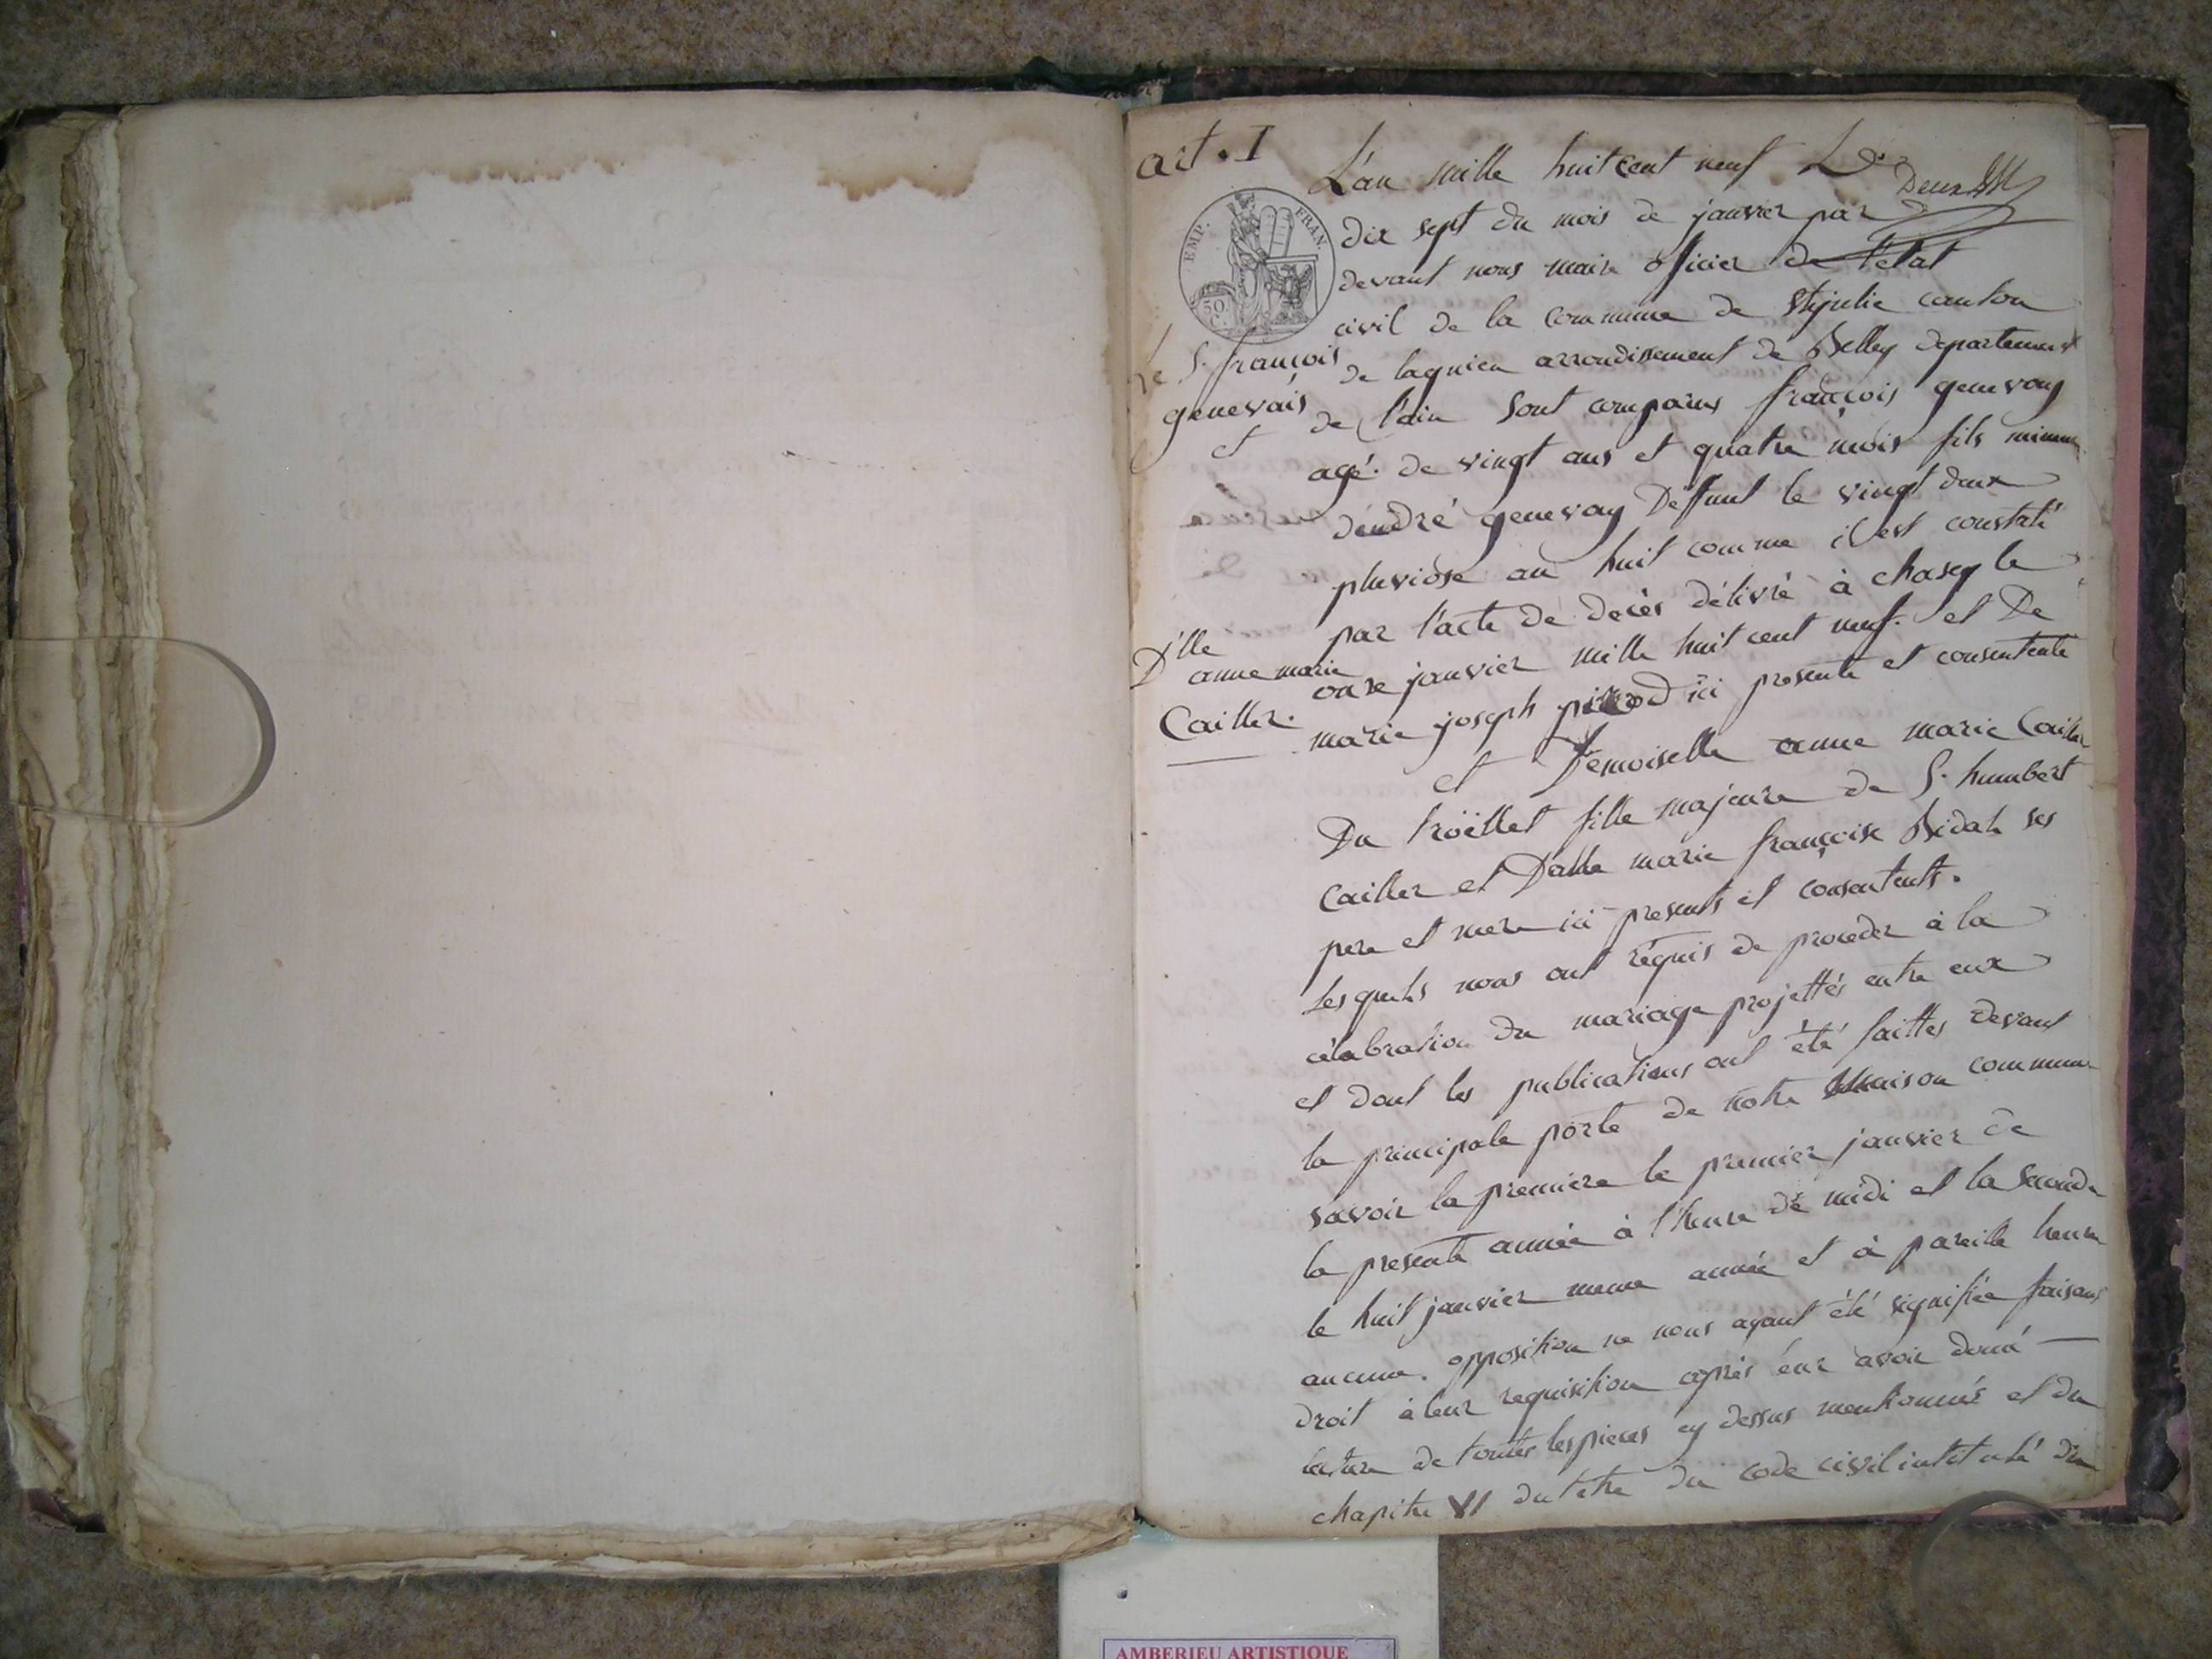 art. I
EMP. FRAN.
50 C.
Le S. françois
genevais
et
D'lle
anne marie
Cailler.
L'an mille huit cent neuf Le
dix sept du mois de janvier par
devant nous maire officier de l'etat
civil de la commune de Ste julie canton
de lagnieu arrondissement de Belley departement
de l'ain sont comparus françois genevay
agé. de vingt ans et quatre mois fils mineur
d'andré genevay deffunt le vingt deux
pluviose an huit comme il est constaté
par l'acte de decès délivré à chasey le
onze janvier mille huit cent neuf. et De
marie joseph ici presente et consentente
et Demoiselle anne marie Cailler
Du fille majeure de S. humbert
Cailler et D'alle marie françoise Bidah ses
pere et mere ici presents et consentents.
Lesquels nous ont réquis de proceder à la
célabration du mariage projettés entre eux
et dont les publications ont été faittes devant
la principale porte de notre maison commune
savoir la premiere le premier janvier de
la presente année à l'heure de midi et la seconde
le huit janvier meme année et à pareille heure
aucune. opposition ne nous ayant été signifiée faisans
droit à leur requisition après leur avoir donné
lecture de toutes les pieces cy dessus mentionnés et du
chapitre VI du titre du code civil intitulé du
AMBERIEU ARTISTIQUE